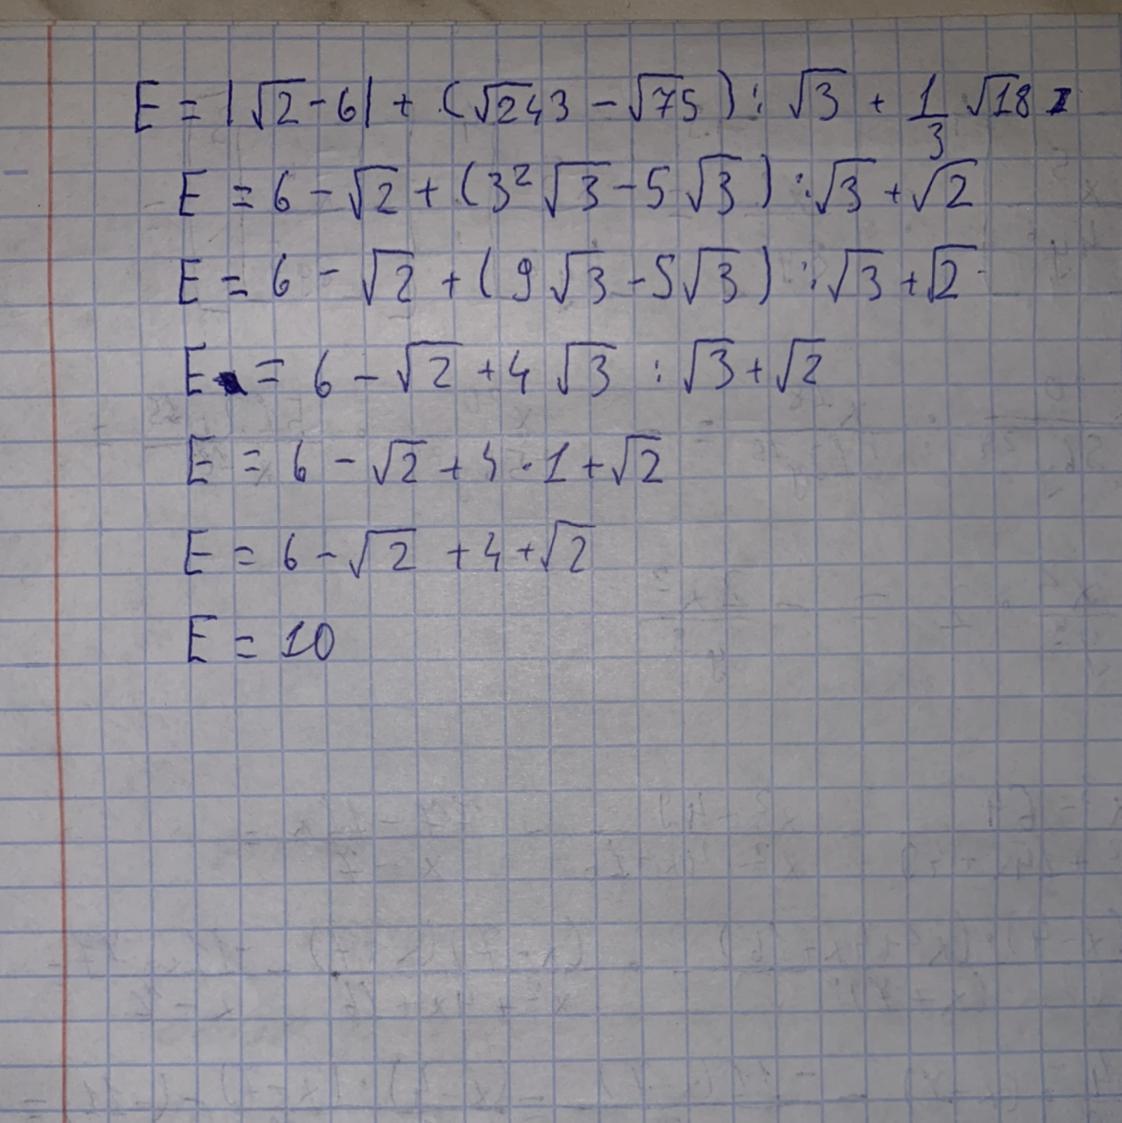 E = |√2 - 6| + (√243 - √75) : √3 + 1/3 √18
E = 6 - √2 + (3² √3 - 5 √3) : √3 + √2
E = 6 - √2 + (9 √3 - 5 √3) : √3 + √2
E = 6 - √2 + 4 √3 : √3 + √2
E = 6 - √2 + 4 · 1 + √2
E = 6 - √2 + 4 + √2
E = 10